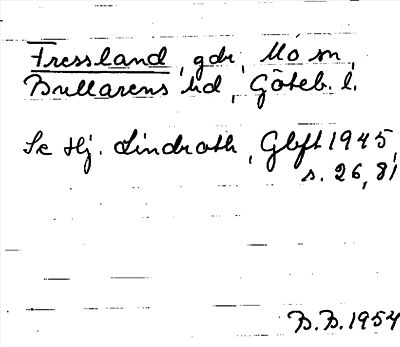 Fressland, gdr, Mo sn,
Bullarens hd, Göteb. l.
Se Hj. Lindroth, Gbft 1945,
s. 26, 81
B.B. 1954